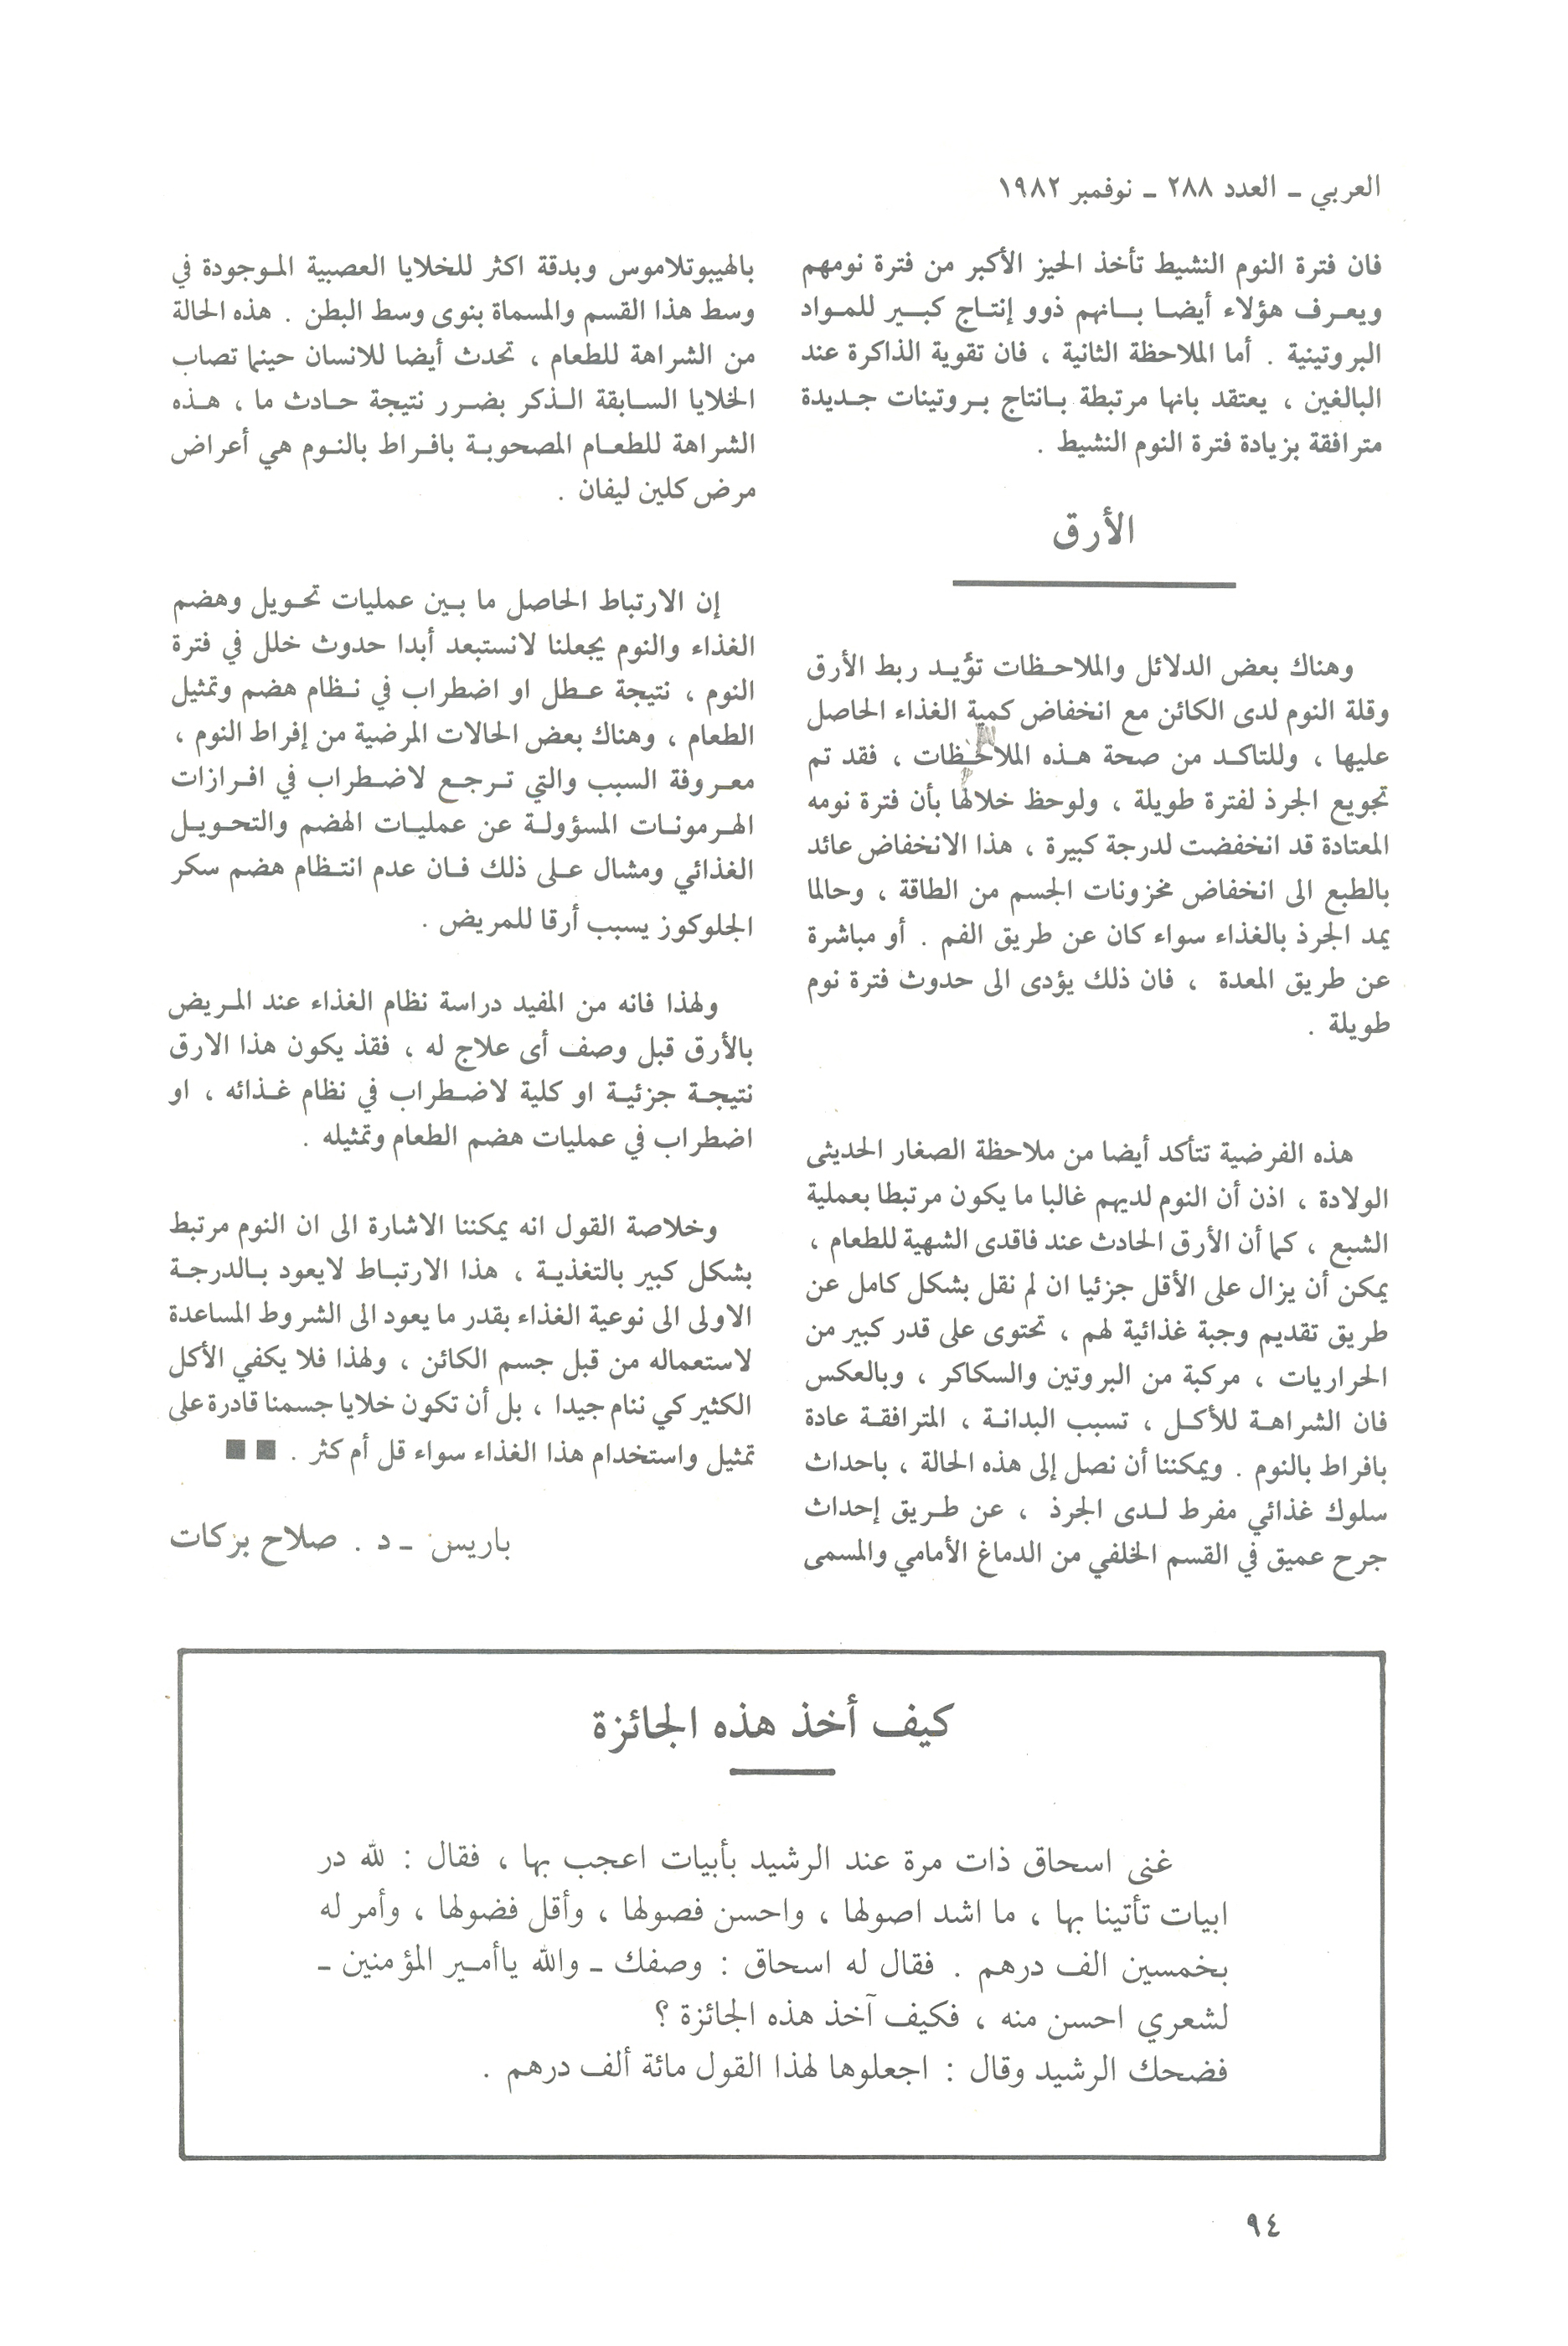 العربي ـ العدد ٢٨٨ ـ نوفمبر ١٩٨٢
فان فترة النوم النشيط تأخذ الحيز الأكبر من فترة نومهم
ويعرف هؤلاء أيضا بانهم ذوو إنتاج كبير للمواد
البروتينية . أما الملاحظة الثانية ، فان تقوية الذاكرة عند
البالغين ، يعتقد بانها مرتبطة بانتاج بروتينات جديدة
مترافقة بزيادة فترة النوم النشيط .
الأرق
وهناك بعض الدلائل والملاحظات تؤيد ربط الأرق
وقلة النوم لدى الكائن مع انخفاض كمية الغذاء الحاصل
عليها ، وللتاكد من صحة هذه الملاحظات ، فقد تم
تجويع الجرذ لفترة طويلة ، ولوحظ خلالها بأن فترة نومه
المعتادة قد انخفضت لدرجة كبيرة ، هذا الانخفاض عائد
بالطبع الى انخفاض مخزونات الجسم من الطاقة ، وحالما
يمد الجرذ بالغذاء سواء كان عن طريق الفم . أو مباشرة
عن طريق المعدة ، فان ذلك يؤدى الى حدوث فترة نوم
طويلة .
هذه الفرضية تتأكد أيضا من ملاحظة الصغار الحديثى
الولادة ، اذن أن النوم لديهم غالبا ما يكون مرتبطا بعملية
الشبع ، كما أن الأرق الحادث عند فاقدى الشهية للطعام ،
يمكن أن يزال على الأقل جزئيا ان لم نقل بشكل كامل عن
طريق تقديم وجبة غذائية لهم ، تحتوى على قدر كبير من
الحراريات ، مركبة من البروتين والسكاكر ، وبالعكس
فان الشراهة للأكل ، تسبب البدانة ، المترافقة عادة
بافراط بالنوم . ويمكننا أن نصل إلى هذه الحالة ، باحداث
سلوك غذائي مفرط لدى الجرذ ، عن طريق إحداث
جرح عميق في القسم الخلفي من الدماغ الأمامي والمسمى
بالهيبوتلاموس وبدقة اكثر للخلايا العصبية الموجودة في
وسط هذا القسم والمسماة بنوى وسط البطن . هذه الحالة
من الشراهة للطعام ، تحدث أيضا للانسان حينما تصاب
الخلايا السابقة الذكر بضرر نتيجة حادث ما ، هذه
الشراهة للطعام المصحوبة بافراط بالنوم هي أعراض
مرض كلين ليفان .
إن الارتباط الحاصل ما بين عمليات تحويل وهضم
الغذاء والنوم يجعلنا لانستبعد أبدا حدوث خلل في فترة
النوم ، نتيجة عطل او اضطراب في نظام هضم وتمثيل
الطعام ، وهناك بعض الحالات المرضية من إفراط النوم ،
معروفة السبب والتي ترجع لاضطراب في افرازات
الهرمونات المسؤولة عن عمليات الهضم والتحويل
الغذائي ومشال على ذلك فان عدم انتظام هضم سكر
الجلوكوز يسبب أرقا للمريض .
ولهذا فانه من المفيد دراسة نظام الغذاء عند المريض
بالأرق قبل وصف أى علاج له ، فقذ يكون هذا الارق
نتيجة جزئية او كلية لاضطراب في نظام غذائه ، او
اضطراب في عمليات هضم الطعام وتمثيله .
وخلاصة القول انه يمكننا الاشارة الى ان النوم مرتبط
بشكل كبير بالتغذية ، هذا الارتباط لايعود بالدرجة
الاولى الى نوعية الغذاء بقدر ما يعود الى الشروط المساعدة
لاستعماله من قبل جسم الكائن ، ولهذا فلا يكفي الأكل
الكثير كي ننام جيدا ، بل أن تكون خلايا جسمنا قادرة على
تمثيل واستخدام هذا الغذاء سواء قل أم كثر . ■ ■
باريس ـ د . صلاح بركات
كيف أخذ هذه الجائزة
غنى اسحاق ذات مرة عند الرشيد بأبيات اعجب بها ، فقال : لله در
ابيات تأتينا بها ، ما اشد اصولها ، واحسن فصولها ، وأقل فضولها ، وأمر له
بخمسين الف درهم . فقال له اسحاق : وصفك ـ والله ياأمير المؤمنين ـ
لشعري احسن منه ، فكيف آخذ هذه الجائزة ؟
فضحك الرشيد وقال : اجعلوها لهذا القول مائة ألف درهم .
٩٤